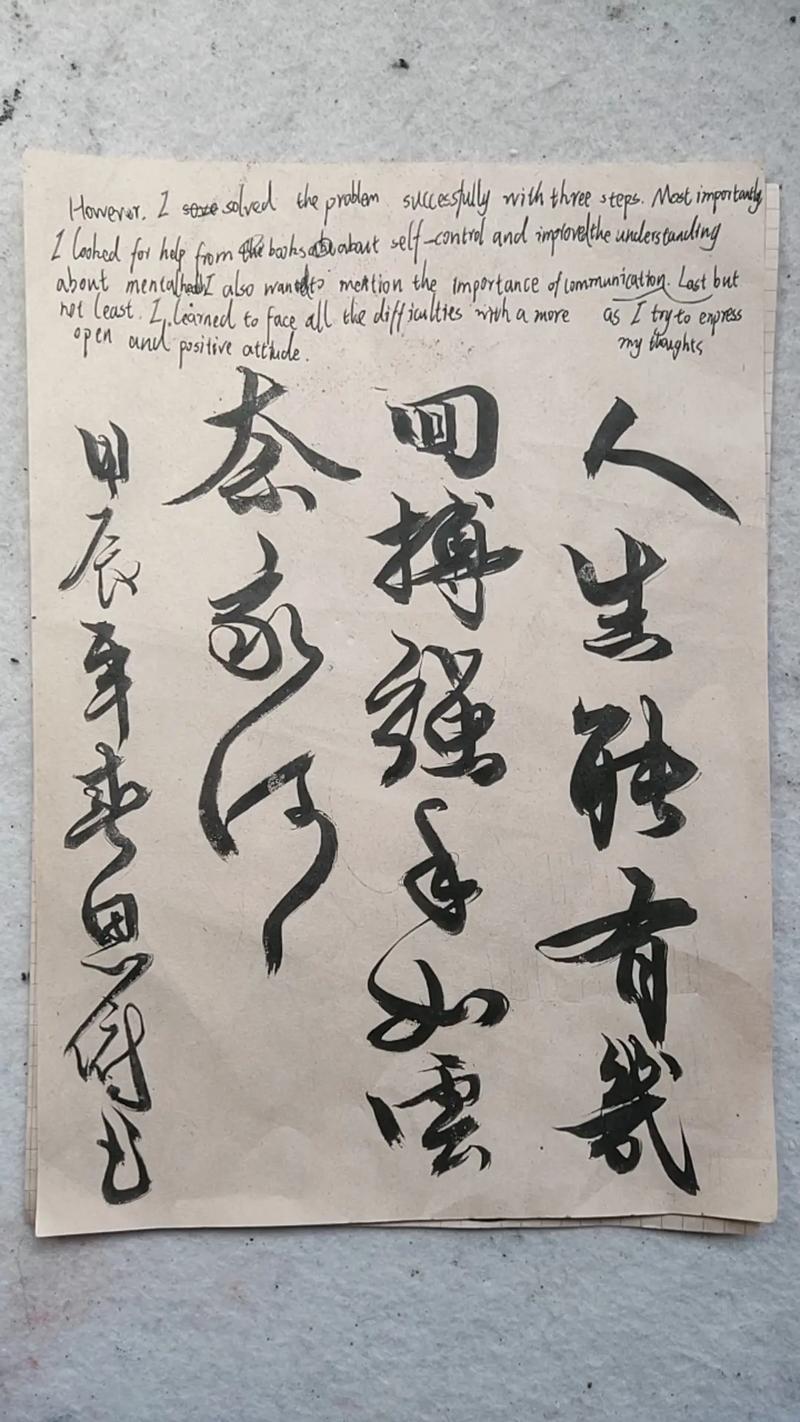 However, I solved the problem successfully with three steps. Most importantly
I looked for help from books about self-control and improved the understanding
about mental health I also wanted to mention the importance of communication. Last but
not least. I learned to face all the difficulties with a more
open and positive attitude.
as I try to express
my thoughts
人生能有幾
回搏強手如雲
奈我何
甲辰年春思书